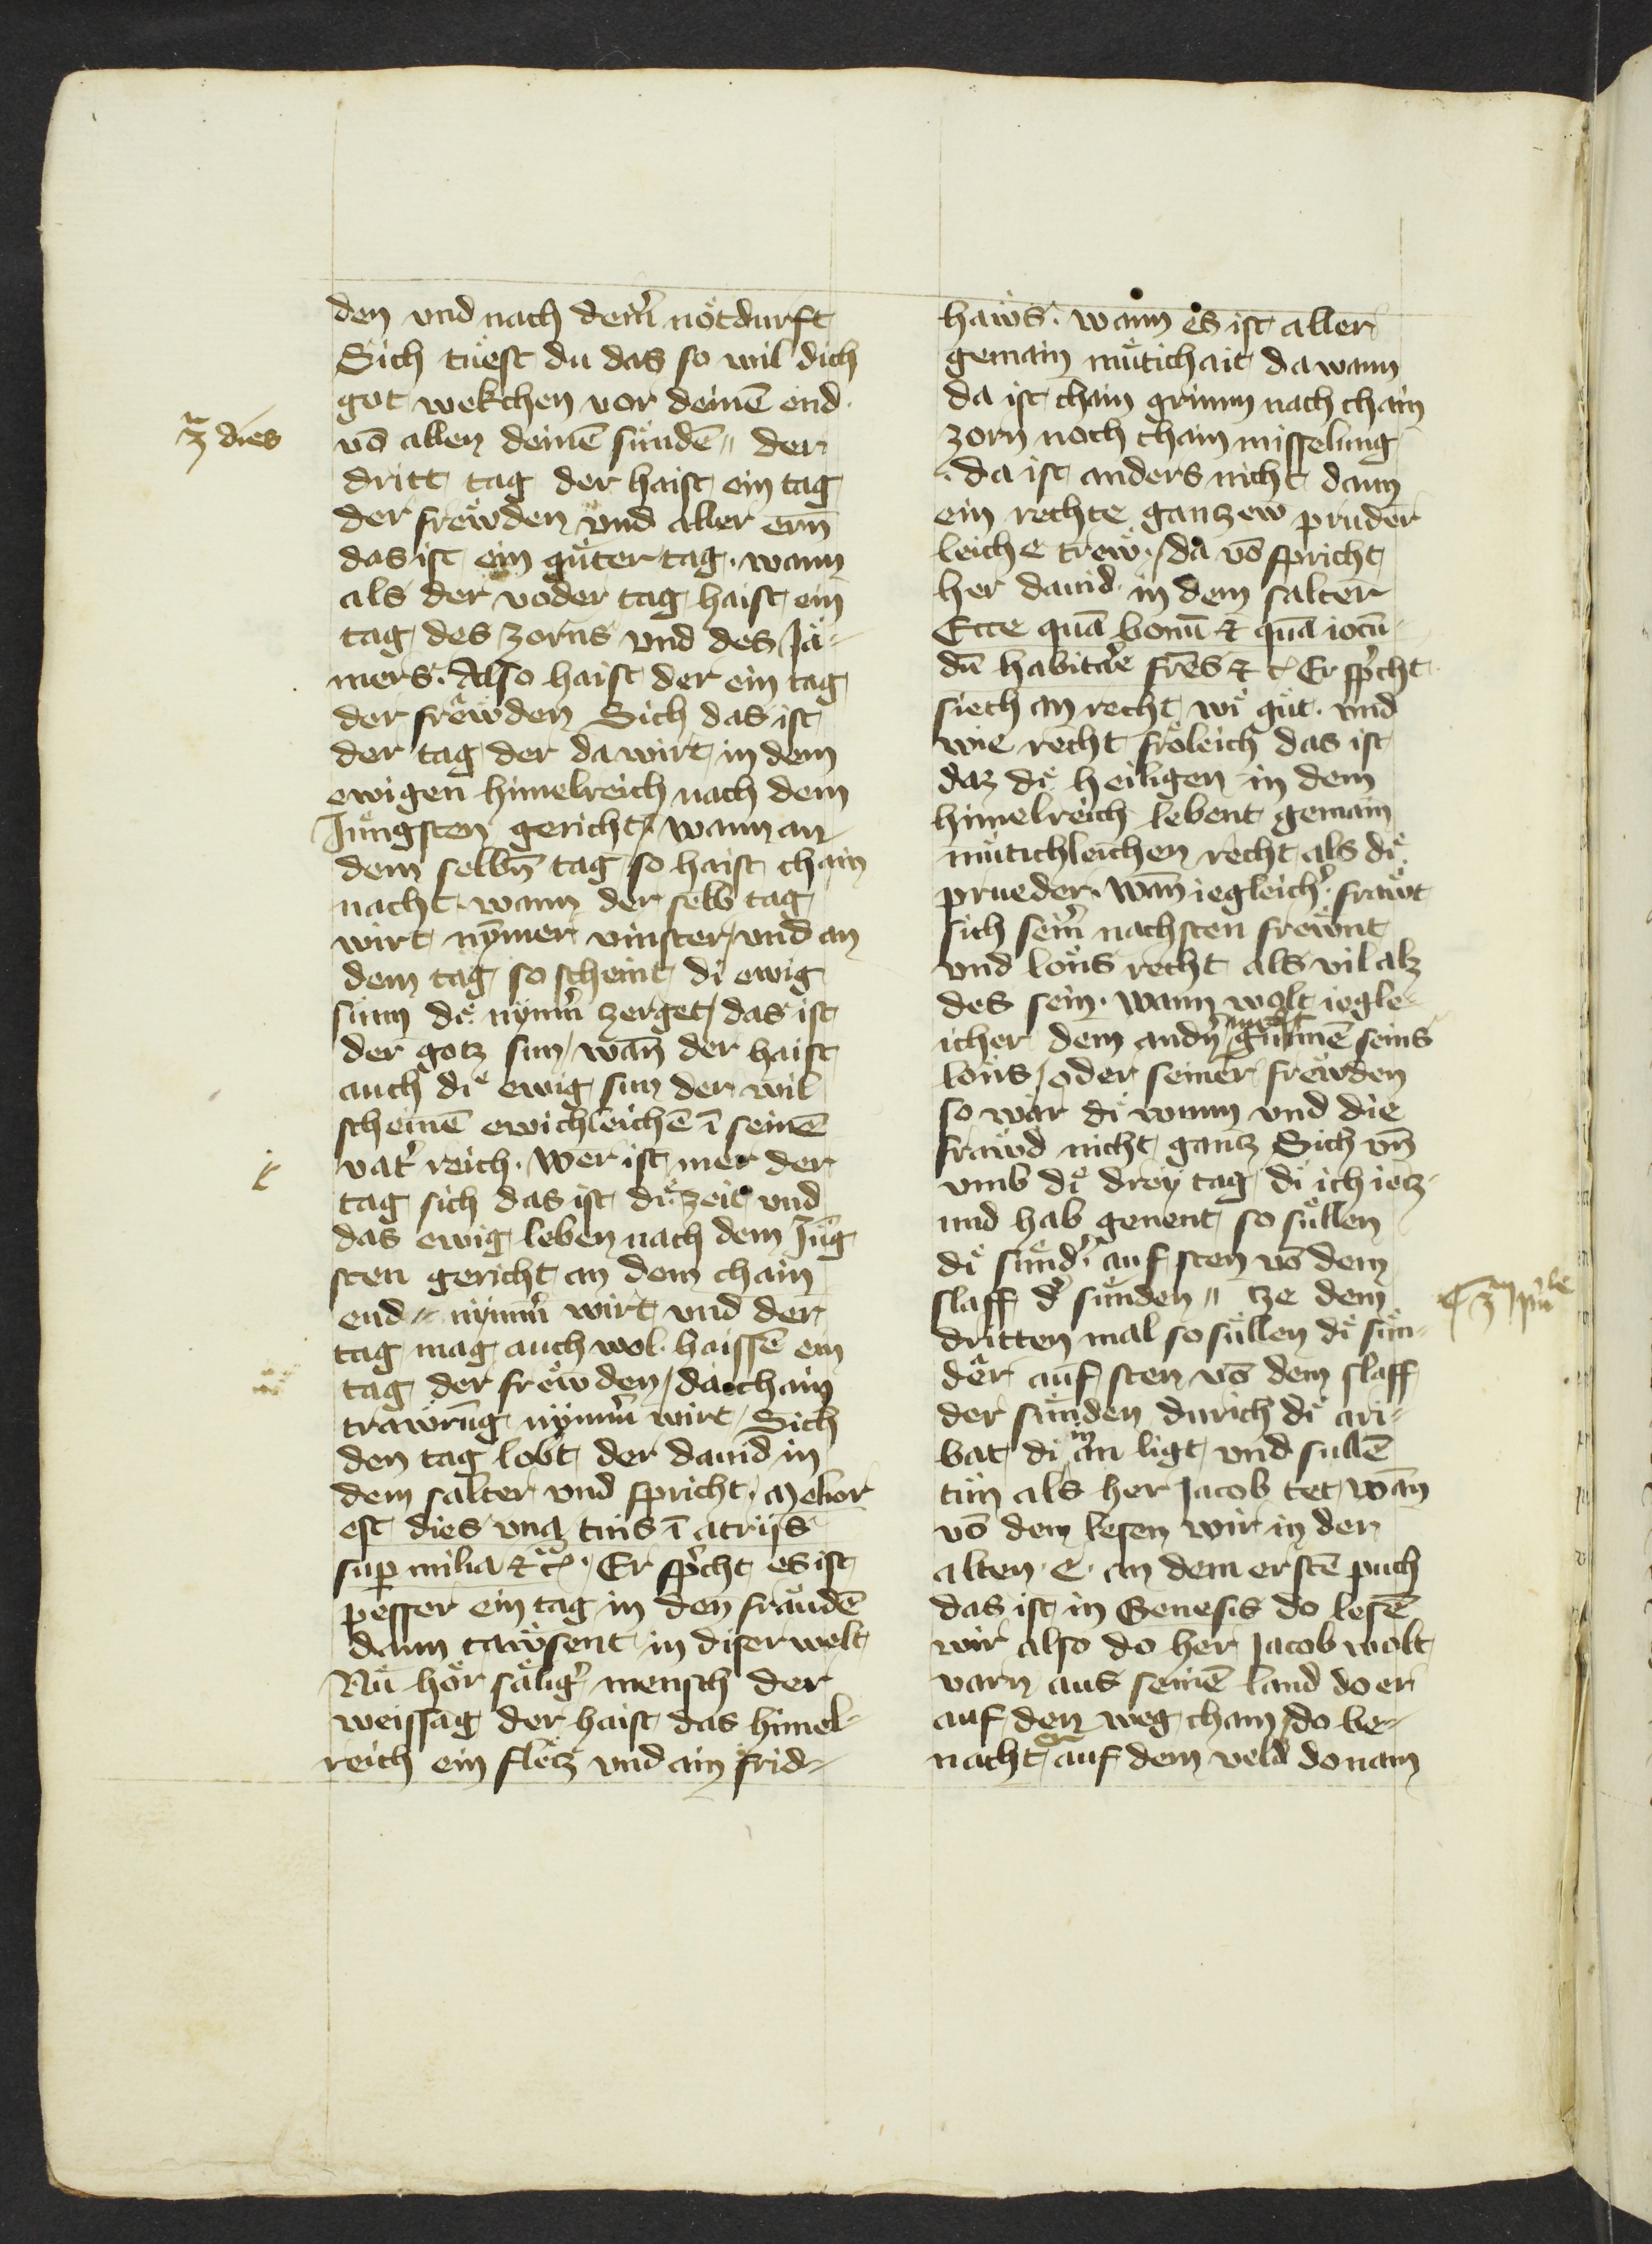 den vnd nach dem̄ nötdurft
Sich tuͤest du das so wil dich
got wekchen vor deinē end.
3ᵃ dies
vō allen deinē suͤndē〃 der
dritt tag der haist ein tag
der freẅden vnd aller ern̄
das ist ein guͤter tag. wann
als der voder tag haist ein
tag des zorns vnd des Jä-
mers. Also haist der ein tag
der freẅden Sich das ist
der tag der da wirt in dem
ewigen himelreich nach dem
Juͤngsten gericht / wann an
dem selbn̄ tag so haist chain
nacht. wann der selb tag
wirt nȳmer vinster / vnd an
dem tag so scheint di ewig
sunn diͤ nymm̄ zerget / das ist
der gotz sun / wān der haist
auch diͤ ewig sun der wil
scheinē ewichleichē ī seinē
vat̄ reich. Wer ist mer der
tag sich das ist diͤ zeit vnd
das ewig leben nach dem Juͤg
sten gericht an dem chain
end〃 nymm̄ wirt vnd der
tag mag auch wol haissē ein
tag der freẅden / da chain
trawrūg nymm̄ wirt / Sich
den tag lobt der dauid in
dem salter vnd spricht. Melior
est dies vna tuis ī atrijs
sup milia ⁊ cᵃ. Er sp̄cht es ist
pesser ein tag in den fräudē
dann taẅsent in diser welt
Nuͤ hör säliḡ mensch der
weissag der haist das himel-
reich ein fletz vnd ain frid-
haẅs. wann es ist aller
gemain muͤtichait da wann
da ist chain grimm nach chain
zorn noch chain misselung
. da ist anders nicht dann
ein rechte gantzew pruder
leiche treẅ. / da vō spricht
her dauid in dem salter
Ecce quā bonū ⁊ quā iocū-
dū habitar̄e frēs ⁊ c Er sp̄cht
siech an recht wiͤ guͤt. vnd
wie recht fröleich das ist
daz diͤ heiligen in dem
himelreich lebent gemain
muͤtichleichen recht als diͤ
prueder. wān iegleich̄. fraẅt
sich sein̄ nachsten freẅnt
vnd loͤns recht als vil alz
des sein. wann wolt iegle-
icher dem andn̄ nicht gunnē seins
loͤns / oder seiner freẅden
so wär diͤ wunn vnd die
fraẅd nicht gantz Sich vn̄
vmb diͤ drey tag di ich ietz-
und hab genent so suͤllen
diͤ suͤnd̄. auf sten vō dem
slaff d̄ suͤnden〃 tze dem
dritten mal so suͤllen diͤ suͤn-
der auf sten vō dem slaff
der suͤnden durich diͤ ari-
bat di in an ligt vnd sullē
tuͤn als her Jacob tet wān
vō dem lesen wir in der
alten. e. an dem erstē puch
das ist in Genesis do lesē
wir also do her Jacob wolt
varn aus seinē land do er
auf den weg cham / do be-
nacht er auf dem veld do nam